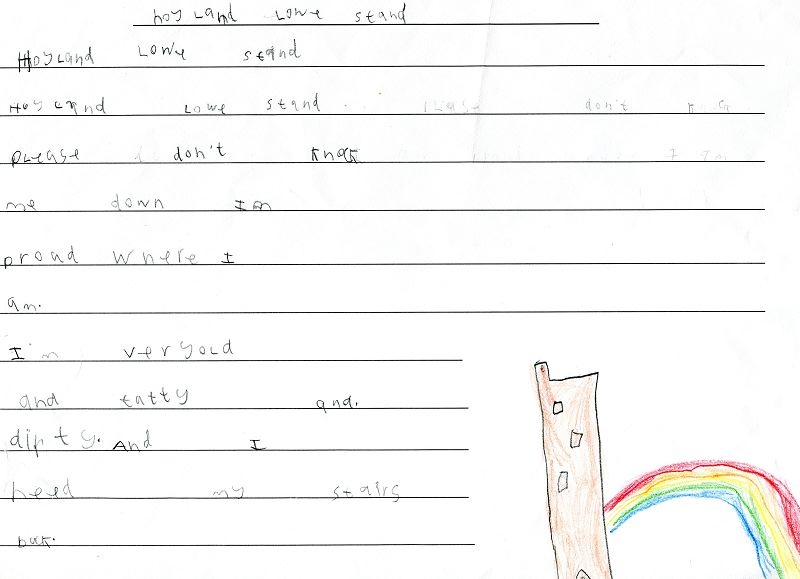 hoyLand Lowe stand
HoyLand Lowe stand
Hoy Land Lowe stand please don't knck
pLease don't knock
me down Im
proud where I
am.
I'm very oLd
and tatty and.
dirty. And I
need my stairs
back.